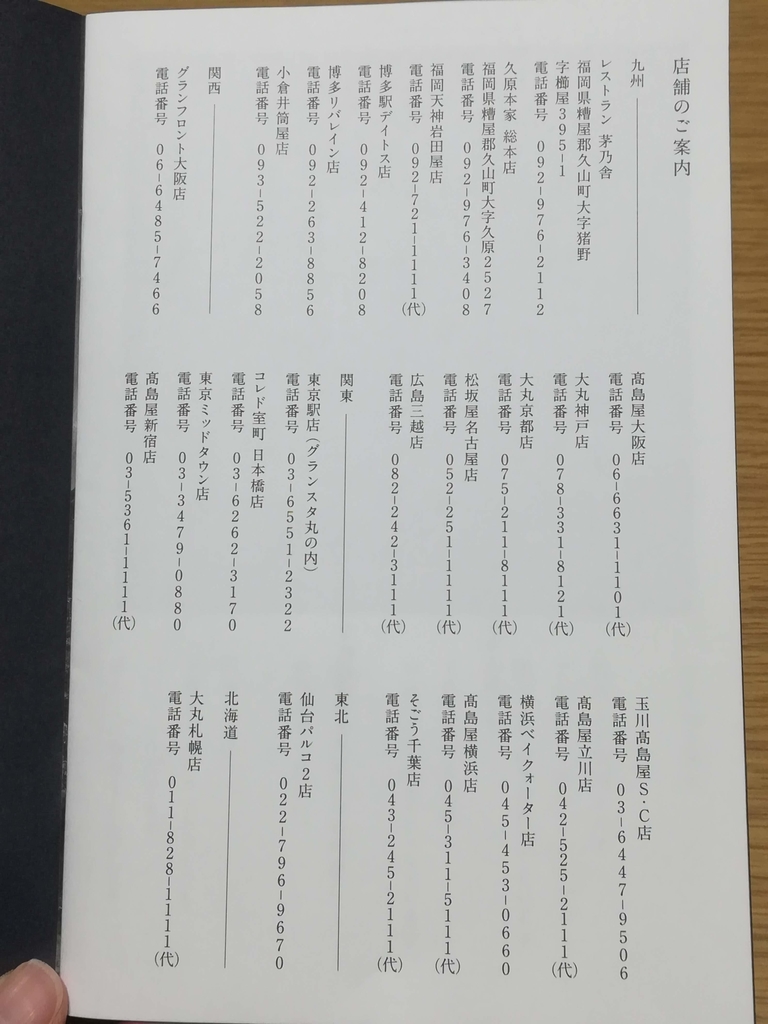 店舗のご案内
九州
レストラン 茅乃舎
福岡県糟屋郡久山町大字猪野
字櫛屋395-1
電話番号 092-976-2112
久原本家 総本店
福岡県糟屋郡久山町大字久原2527
電話番号 092-976-3408
福岡天神岩田屋店
電話番号 092-721-1111(代)
博多駅デイトス店
電話番号 092-412-8208
博多リバレイン店
電話番号 092-263-8856
小倉井筒屋店
電話番号 093-522-2058
関西
グランフロント大阪店
電話番号 06-6485-7466
髙島屋大阪店
電話番号 06-6631-1101(代)
大丸神戸店
電話番号 078-331-8121(代)
大丸京都店
電話番号 075-211-8111(代)
松坂屋名古屋店
電話番号 052-251-1111(代)
広島三越店
電話番号 082-242-3111(代)
関東
東京駅店(グランスタ丸の内)
電話番号 03-6551-2322
コレド室町 日本橋店
電話番号 03-6262-3170
東京ミッドタウン店
電話番号 03-3479-0880
髙島屋新宿店
電話番号 03-5361-1111(代)
玉川髙島屋S・C店
電話番号 03-6447-9506
髙島屋立川店
電話番号 042-525-2111(代)
横浜ベイクォーター店
電話番号 045-453-0660
髙島屋横浜店
電話番号 045-311-5111(代)
そごう千葉店
電話番号 043-245-2111(代)
東北
仙台パルコ2店
電話番号 022-796-9670
北海道
大丸札幌店
電話番号 011-828-1111(代)